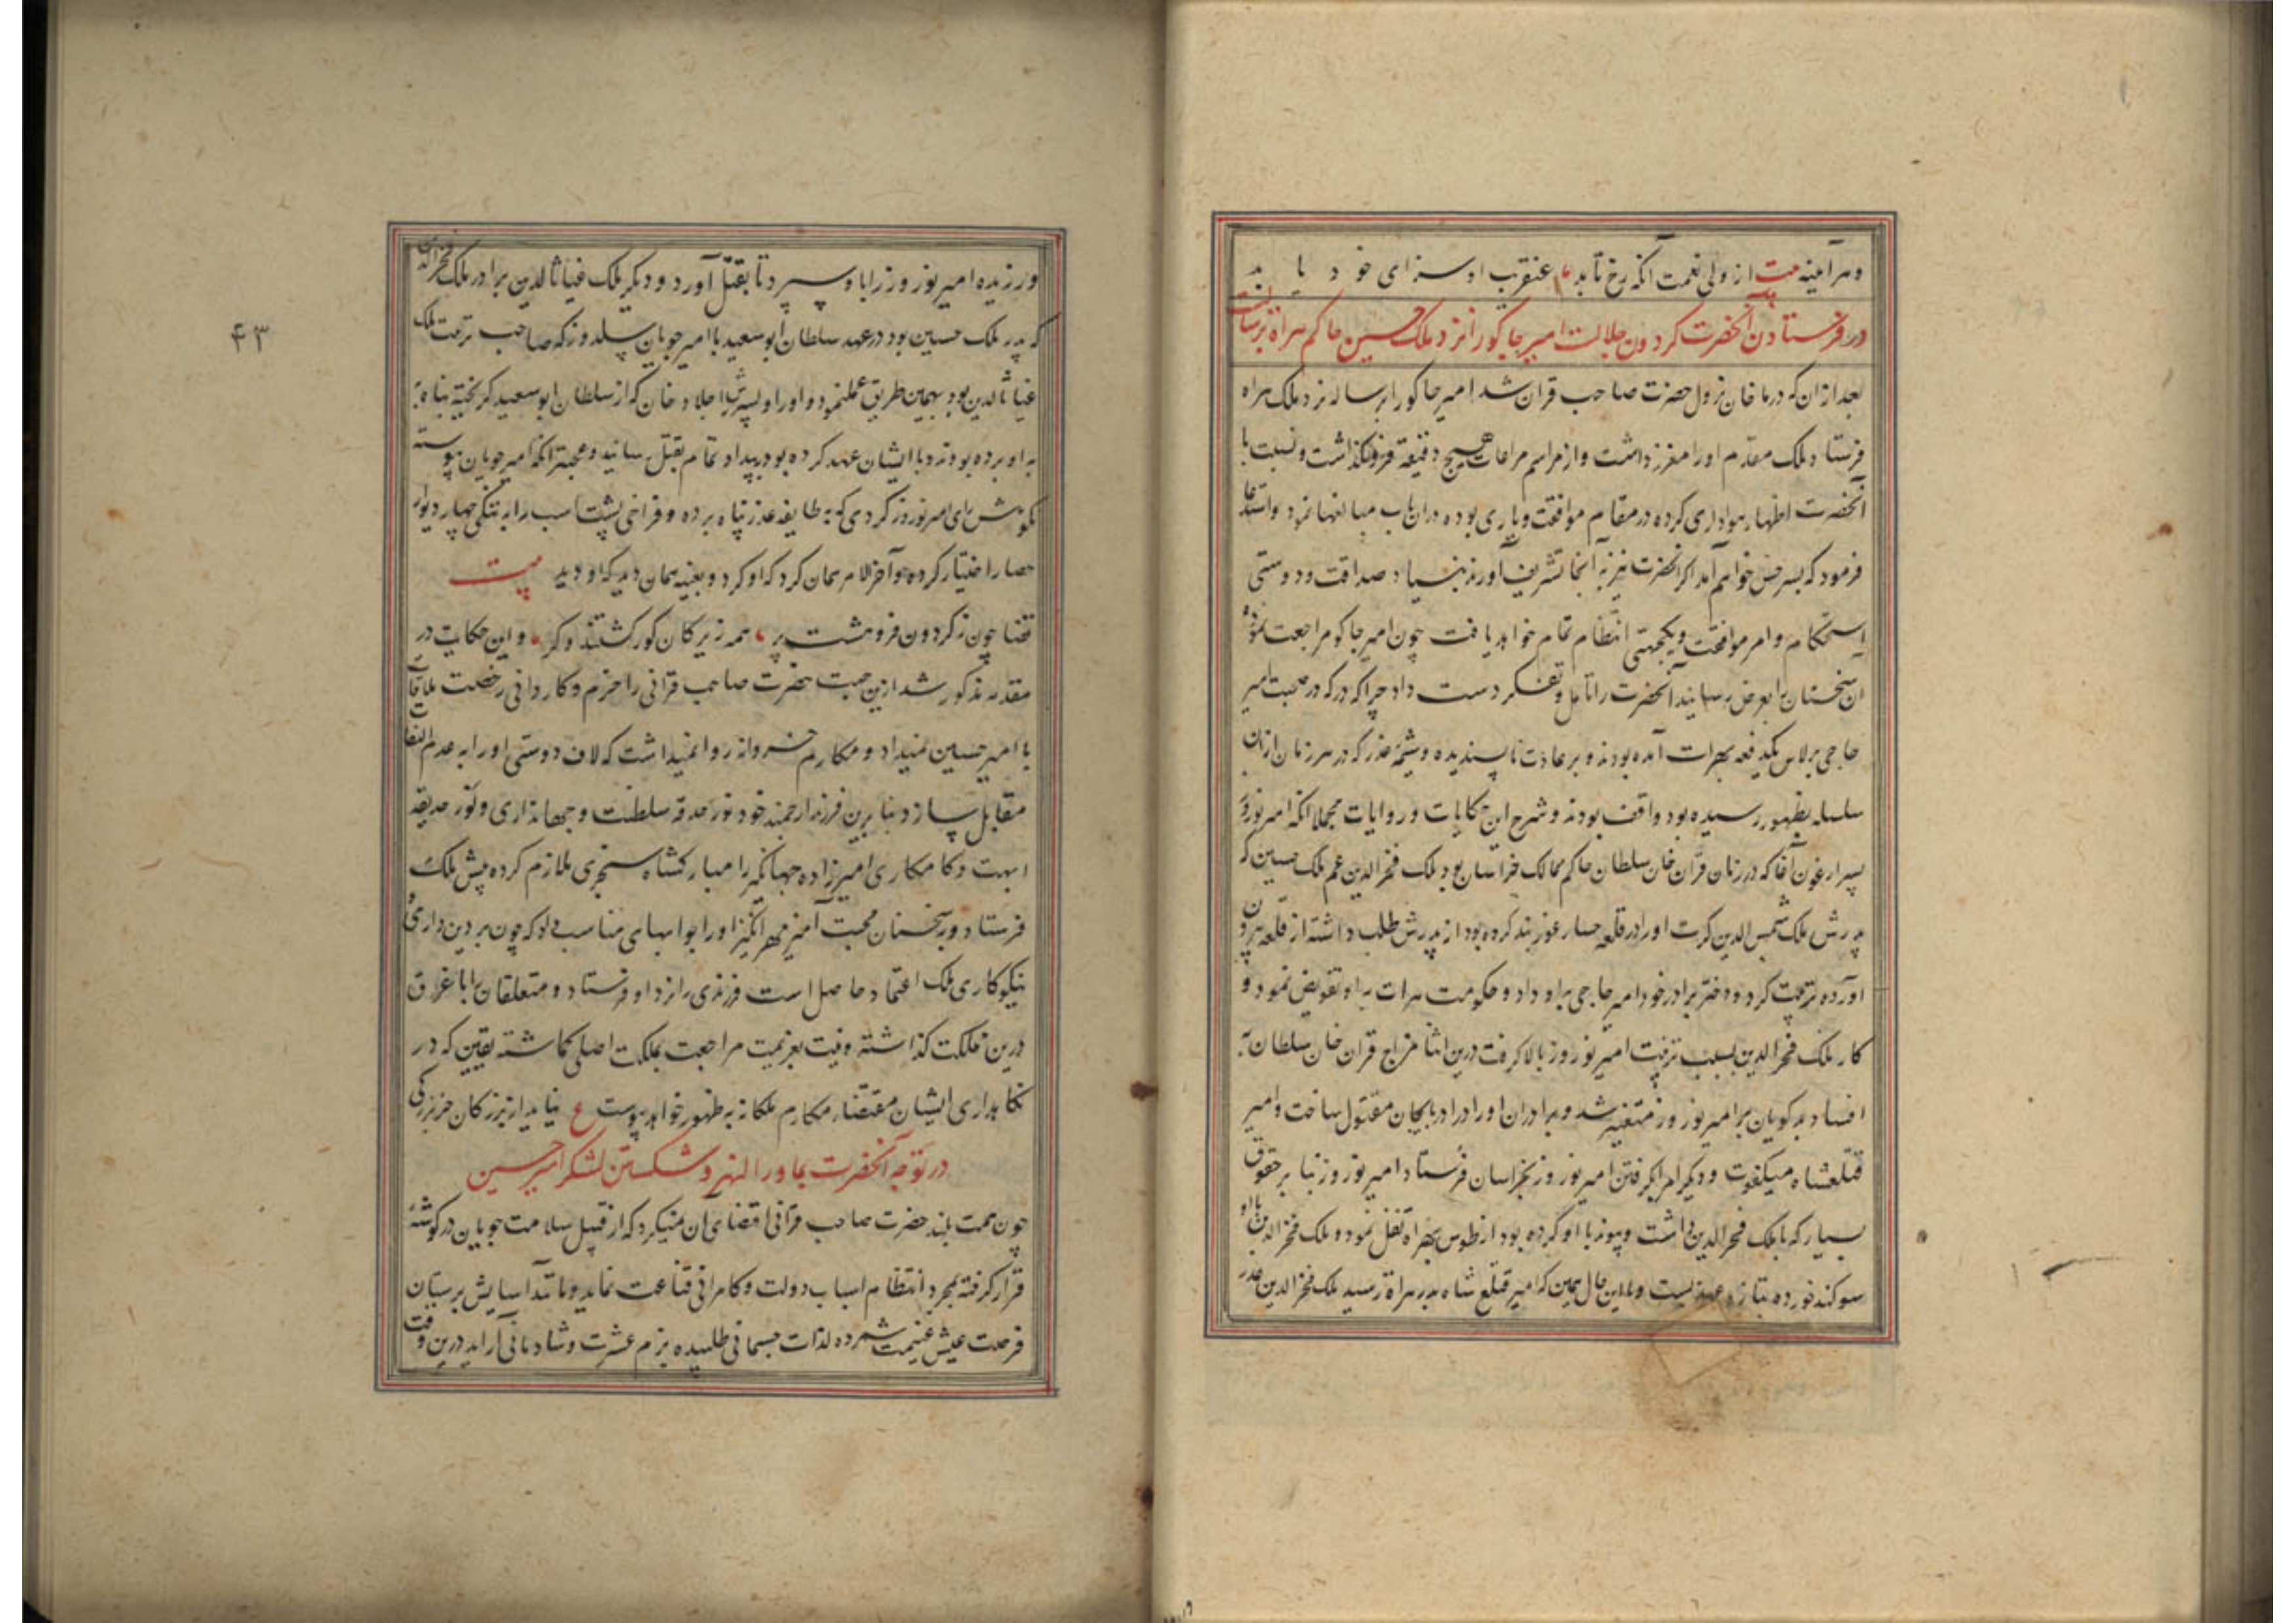 و هرآینه بیت از ولی نعمت آنکه رخ تابد عنقریب او سزای خود یابد
در فرستادن آنحضرت گردون جلالت امیر جاکو را نزد ملک حسین حاکم هراة برسالت
بعد از ان که در ماخان نزول حضرت صاحب قران شد امیر جاکو را برساله نزد ملک هراه
فرستاد ملک مقدم او را معزز داشت و از مراسم مراعات هیچ دقیقه فرونگذاشت و نسبت با
آنحضرت اظهار هواداری کرده در مقام موافقت و یاری بوده دران باب مبالغها نمود و استدعا
فرمود که بسرخس خواهم آمد اگر آنحضرت نیز به آنجا تشریف آورند بنیاد صداقت و دوستی
استحکام و امر موافقت و یکجهتی انتظام تمام خواهد یافت چون امیر جاکو مراجعت نموده
ان سخنان را بعرض رسانید آنحضرت را تأمل و تفکر دست داد چرا که در صحبت امیر
حاجی برلاس یکدفعه بهرات آمده بودند و بر عادت ناپسندیده و شیمهٔ غدر که در هر زمان ازان
سلسله بظهور رسیده بود واقف بودند و شرح این حکایات و روایات مجملا آنکه امیر نوروز
پسر ارغون آقا که در زمان قزان خان سلطان حاکم ممالک خراسان بود ملک فخرالدین عم ملک حسین که
پدرش ملک شمس الدین کرت او را در قلعه حصار غور بند کرده بود از پدرش طلب داشته از قلعه بیرون
آورده تربیت کرد و دختر برادر خود امیر حاجی به او داد و حکومت هرات به او تفویض نمود و
کار ملک فخرالدین بسبب تربیت امیر نوروز بالا گرفت درین اثنا مزاج قزان خان سلطان به
افساد بدگویان بر امیر نوروز متغیر شد و برادران او را در اذربایجان مقتول ساخت و امیر
قتلغشاه و دیگر امرا بگرفتن امیر نوروز بخراسان فرستاد امیر نوروز بنا بر حقوق
بسیار که با ملک فخرالدین داشت و پیوند با او کرده بود از طوس بهراة نقل نمود و ملک فخرالدین با او
سوگند خورده بتازه عهد بست و با این حال همین که امیر قتلغ شاه بدر هراة رسید ملک فخرالدین غدر
ورزیده امیر نوروز را باو سپرد تا بقتل آورد و دیگر ملک غیاث الدین برادر ملک فخرالدین
که پدر ملک حسین بود در عهد سلطان ابوسعید با امیر چوپان سلدوز که صاحب تربیت ملک
غیاث الدین بود بهمین طریق عمل نمود و او را و پسرش را جلاد خان که از سلطان ابوسعید گریخته پناه
به او برده بودند و با ایشان عهد کرده بود به بیداد تمام بقتل رسانید و عجبتر آنکه امیر چوپان پیوسته
نکوهش رای امیر نوروز کردی که به طایفه غدر پناه برده و فراخی پشت اسب را به تنگی چهار دیوار
حصار اختیار کرده و آخر الامر همان کرد که او کرد و بعینه همان دید که او دید بیت
قضا چون ز گردون فروهشت پر همه زیرکان کور گشتند و کر و این حکایت در
مقدمه مذکور شد ازین جهت حضرت صاحب قرانی را حزم و کاردانی رخصت ملاقات
با امیر حسین نمیداد و مکارم خسروانه روا نمیداشت که لاف دوستی او را به عدم التفات
مقابل سازد بنا برین فرزند ارجمند خود نور حدقه سلطنت و جهانداری و نور حدیقه
ابهت و کامکاری امیرزاده جهانگیر را مبارکشاه سنجری ملازم کرده پیش ملک
فرستاد و بسخنان محبت آمیز مهرانگیز او را بوابهای مناسب داد که چون بر دین داری و
نیکوکاری ملک اعتماد حاصل است فرزندی را نزد او فرستاد و متعلقان را با غرق
درین مملکت گذاشته و نیت بعزیمت مراجعت بملکت اصلی گماشته یقین که در
نگاهداری ایشان مقتضاء مکارم ملکانه به ظهور خواهد پیوست ع نیاید از بزرگان جز بزرگی
در توجه آنحضرت بماوراالنهر و شکستن لشکر امیر حسین
چون همت بلند حضرت صاحب قرانی اقتضای ان نمیکرد که از قبیل سلامت جویان در گوشهٔ
قرار گرفته بمجرد انتظام اسباب دولت و کامرانی قناعت نماید و مانند آسایش پرستان
فرصت عیش غنیمت شمرده لذات جسمانی طلبیده بزم عشرت و شادمانی آراید درین وقت
۴۳